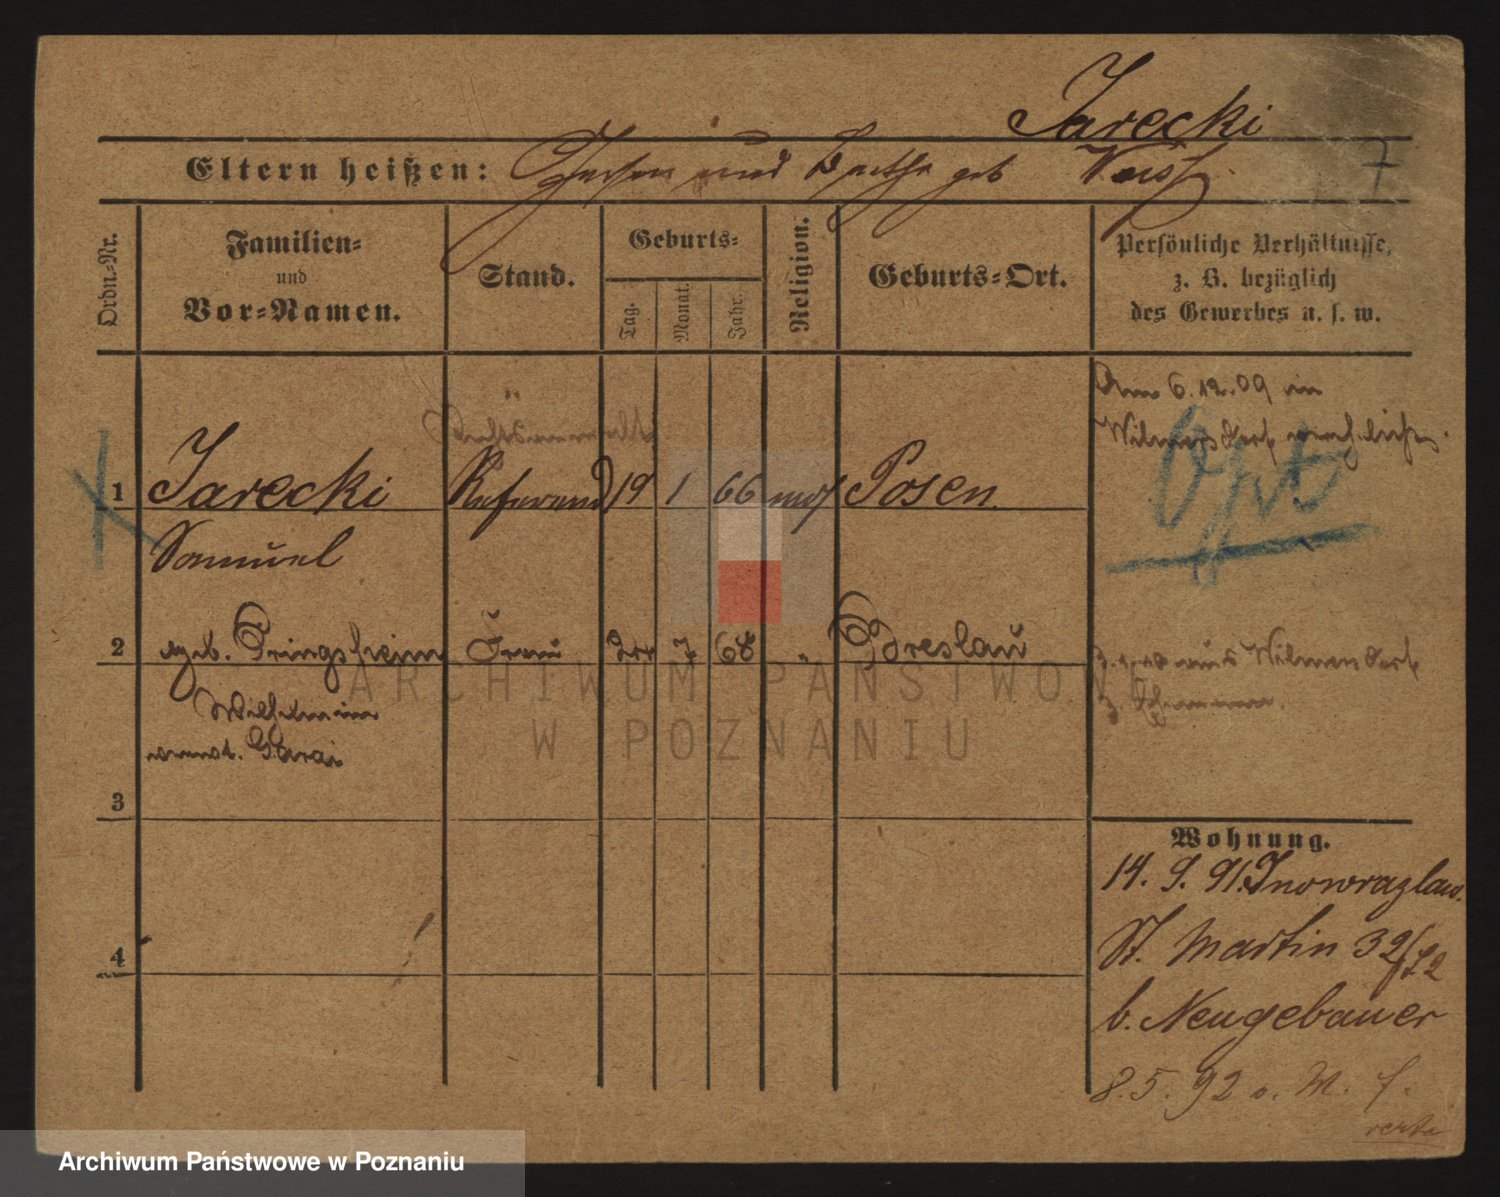 Jarecki
7
Eltern heißen: und Bertha geb Weiss
Ordn.-Nr.
Familien-
und
Vor-Namen.
Stand.
Geburts-
Tag.
Monat.
Jahr.
Religion.
Geburts-Ort.
Persönliche Verhältnisse,
z. B. bezüglich
des Gewerbes u. s. w.
Am 6.12.09 in
Wilmersdorf verehelicht.
Rechtsanwalt
1 Jarecki Referend 19 1 66 mos Posen.
Samuel
2 geb. Pringsheim Frau 7 68 " Breslau
Wilhelmine
Garai
aus Wilmersdorf
3
4
Wohnung.
14. 9. 91. Inowrazlaw.
St. Martin 32
b. Neugebauer
8. 5. 92 o. M. f.
verte
ARCHIWUM PAŃSTWOWE
W POZNANIU
Archiwum Państwowe w Poznaniu